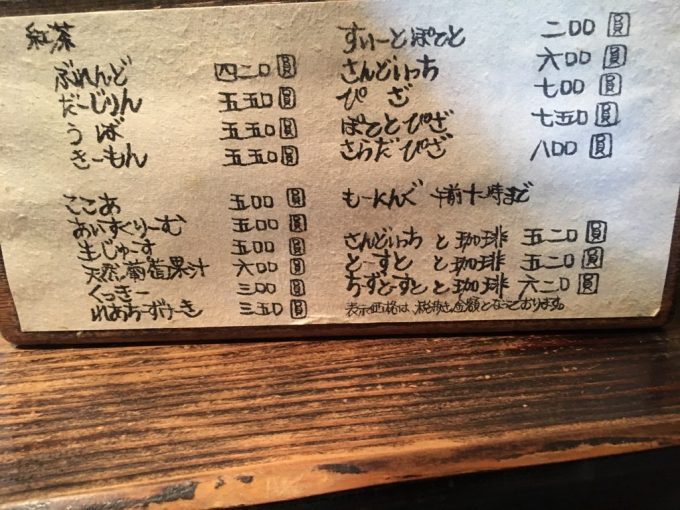 紅茶
ぶれんど 四二〇 圓
だーじりん 五五〇 圓
うば 五五〇 圓
きーもん 五五〇 圓
ここあ 五〇〇 圓
あいすくりーむ 五〇〇 圓
生じゅーす 五〇〇 圓
天然葡萄果汁 六〇〇 圓
くっきー 三〇〇 圓
れあちーずけーき 三五〇 圓
すいーとぽてと 二〇〇 圓
さんどいっち 六〇〇 圓
ぴざ 七〇〇 圓
ぽてとぴざ 七五〇 圓
さらだぴざ 八〇〇 圓
もーにんぐ 午前十時まで
さんどいっち と 珈琲 五二〇 圓
とーすと と 珈琲 五二〇 圓
ちーずとーすと と 珈琲 六二〇 圓
表示価格は、税抜き金額となっております。